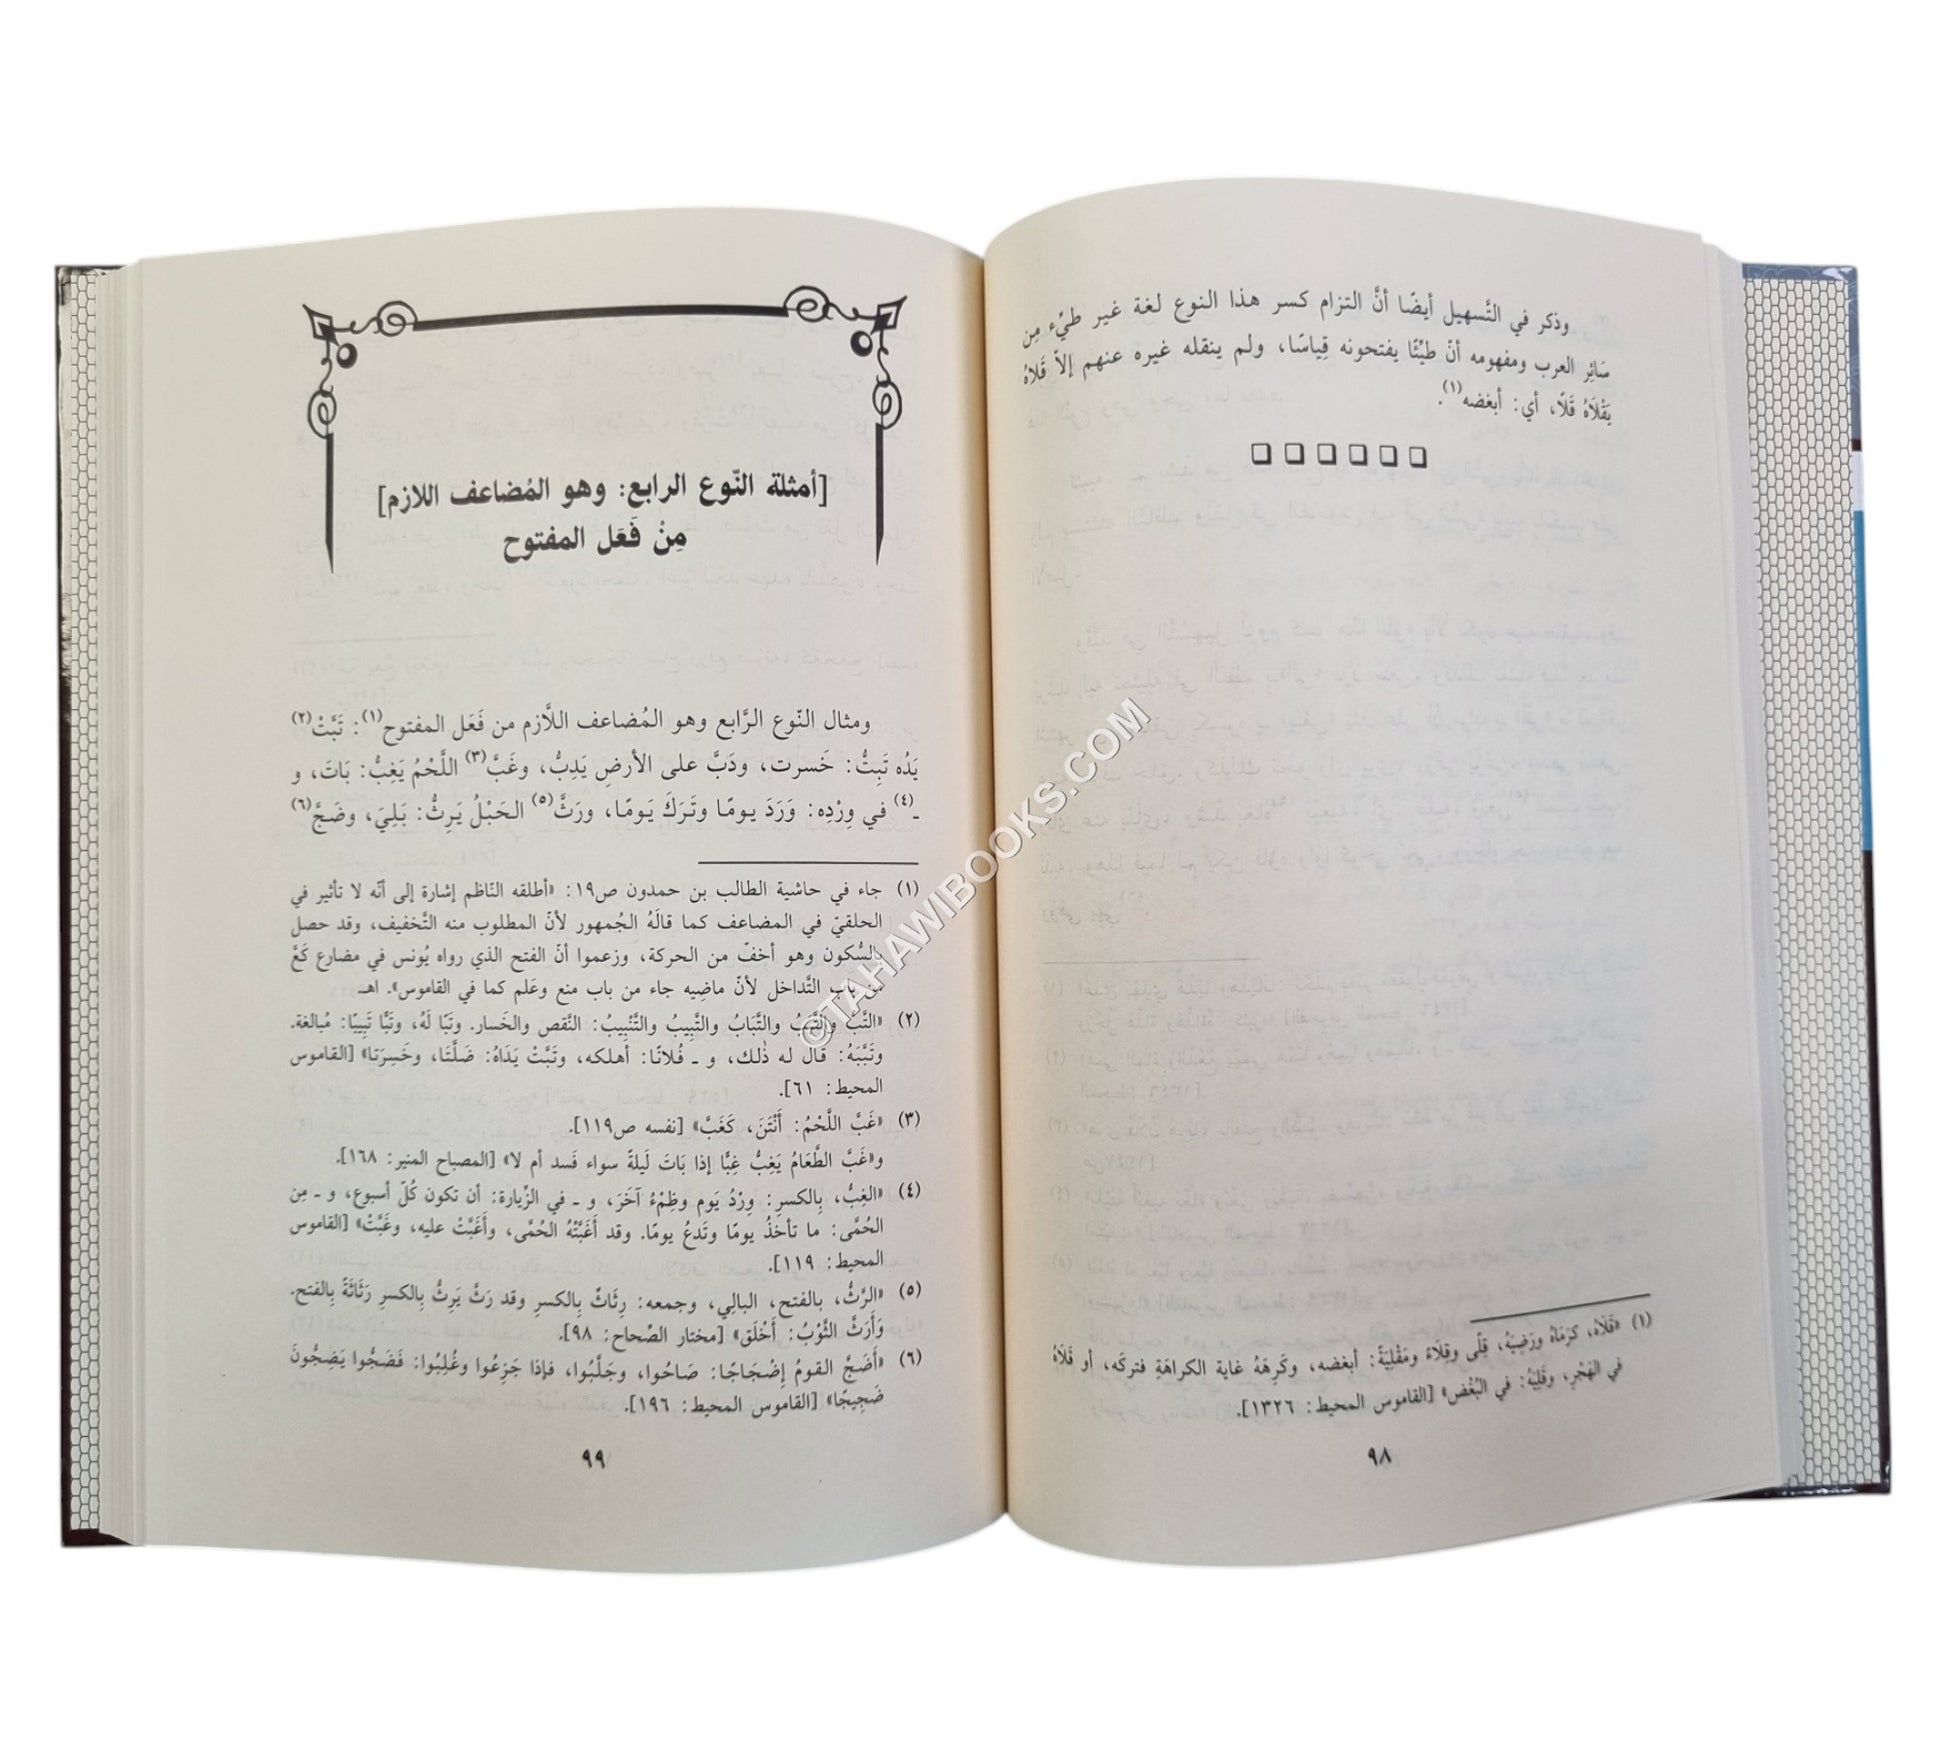 وذكر في التَّسهيل أيضًا أنَّ التزام كسر هذا النوع لغة غير طيِّء مِن
سَائِر العرب ومفهومه أنّ طيِّئًا يفتحونه قِياسًا، ولم ينقله غيره عنهم إلاّ قَلاهُ
يَقْلَاهُ قَلًا، أي: أبغضه(١).
❑ ❑ ❑ ❑ ❑ ❑
(١) «قَلَاهُ، كَرَمَاهُ ورَضِيَهُ، قِلًى وقِلَاءً ومَقْلِيَةً: أبغضه، وكَرِهَهُ غاية الكراهَةِ فتركَه، أو قَلَاهُ
في الهَجْرِ، وقَلِيَهُ: في البُغْض» [القاموس المحيط: ١٣٢٦].
٩٨
[أمثلة النّوع الرابع: وهو المُضاعف اللازم]
مِنْ فَعَل المفتوح
ومثال النّوع الرَّابع وهو المُضاعف اللَّازم من فَعَل المفتوح(١): تَبَّتْ(٢)
يَدُه تَبِتُّ: خَسرت، ودَبَّ على الأرضِ يَدِبُّ، وغَبَّ(٣) اللَّحْمُ يَغِبُّ: بَاتَ، و
ـ(٤) في وِرْدِه: وَرَدَ يومًا وتَرَكَ يَومًا، ورَثَّ(٥) الحَبْلُ يَرِثُّ: بَلِيَ، وضَجَّ(٦)
(١) جاء في حاشية الطالب بن حمدون ص١٩: «أطلقه النّاظم إشارة إلى أنّه لا تأثير في
الحلقيّ في المضاعف كما قالَهُ الجُمهور لأنّ المطلوب منه التَّخفيف، وقد حصل
بِالسُّكون وهو أخفّ من الحركة، وزعموا أنّ الفتح الذي رواه يُونس في مضارع كَعَّ
من باب التَّداخل لأنّ ماضِيه جاء من باب منع وعَلم كما في القاموس». اهـ
(٢) «التَّبُّ والتَّبَبُ والتَّبَابُ والتَّبِيبُ والتَّتْبِيبُ: النَّقص والخَسار. وتَبًّا لَهُ، وتَبًّا تَبِيبًا: مُبالغة.
وتَبَّبَهُ: قال له ذٰلك، و ـ فُلانًا: أهلكه، وتَبَّتْ يَدَاهُ: ضَلَّتَا، وخَسِرَتا» [القاموس
المحيط: ٦١].
(٣) «غَبَّ اللَّحْمُ: أَنْتَنَ، كَغَبَّ» [نفسه ص١١٩].
و«غَبَّ الطَّعَامُ يَغِبُّ غِبًّا إذا بَاتَ لَيلةً سواء فَسد أم لا» [المصباح المنير: ١٦٨].
(٤) «الغِبُّ، بِالكسرِ: وِرْدُ يَوم وظِمْءُ آخَرَ، و ـ في الزِّيارة: أن تكون كُلّ أسبوع، و ـ مِنَ
الحُمَّى: ما تأخذُ يومًا وتَدعُ يومًا. وقد أَغَبَّتْهُ الحُمَّى، وأَغَبَّتْ عليه، وغَبَّتْ» [القاموس
المحيط: ١١٩].
(٥) «الرَّثُّ، بالفتح، البالِي، وجمعه: رِثَاثٌ بِالكسرِ وقد رَثَّ يَرِثُّ بِالكسرِ رَثَاثَةً بِالفتح.
وَأَرَثَّ الثَّوْبُ: أَخْلَق» [مختار الصّحاح: ٩٨].
(٦) «أَضَجَّ القومُ إِضْجَاجًا: صَاحُوا، وجَلَّبُوا، فإذا جَزِعُوا وغُلِبُوا: فَضَجُّوا يَضِجُّونَ
ضَجِيجًا» [القاموس المحيط: ١٩٦].
٩٩
©TAHAWIBOOKS.COM